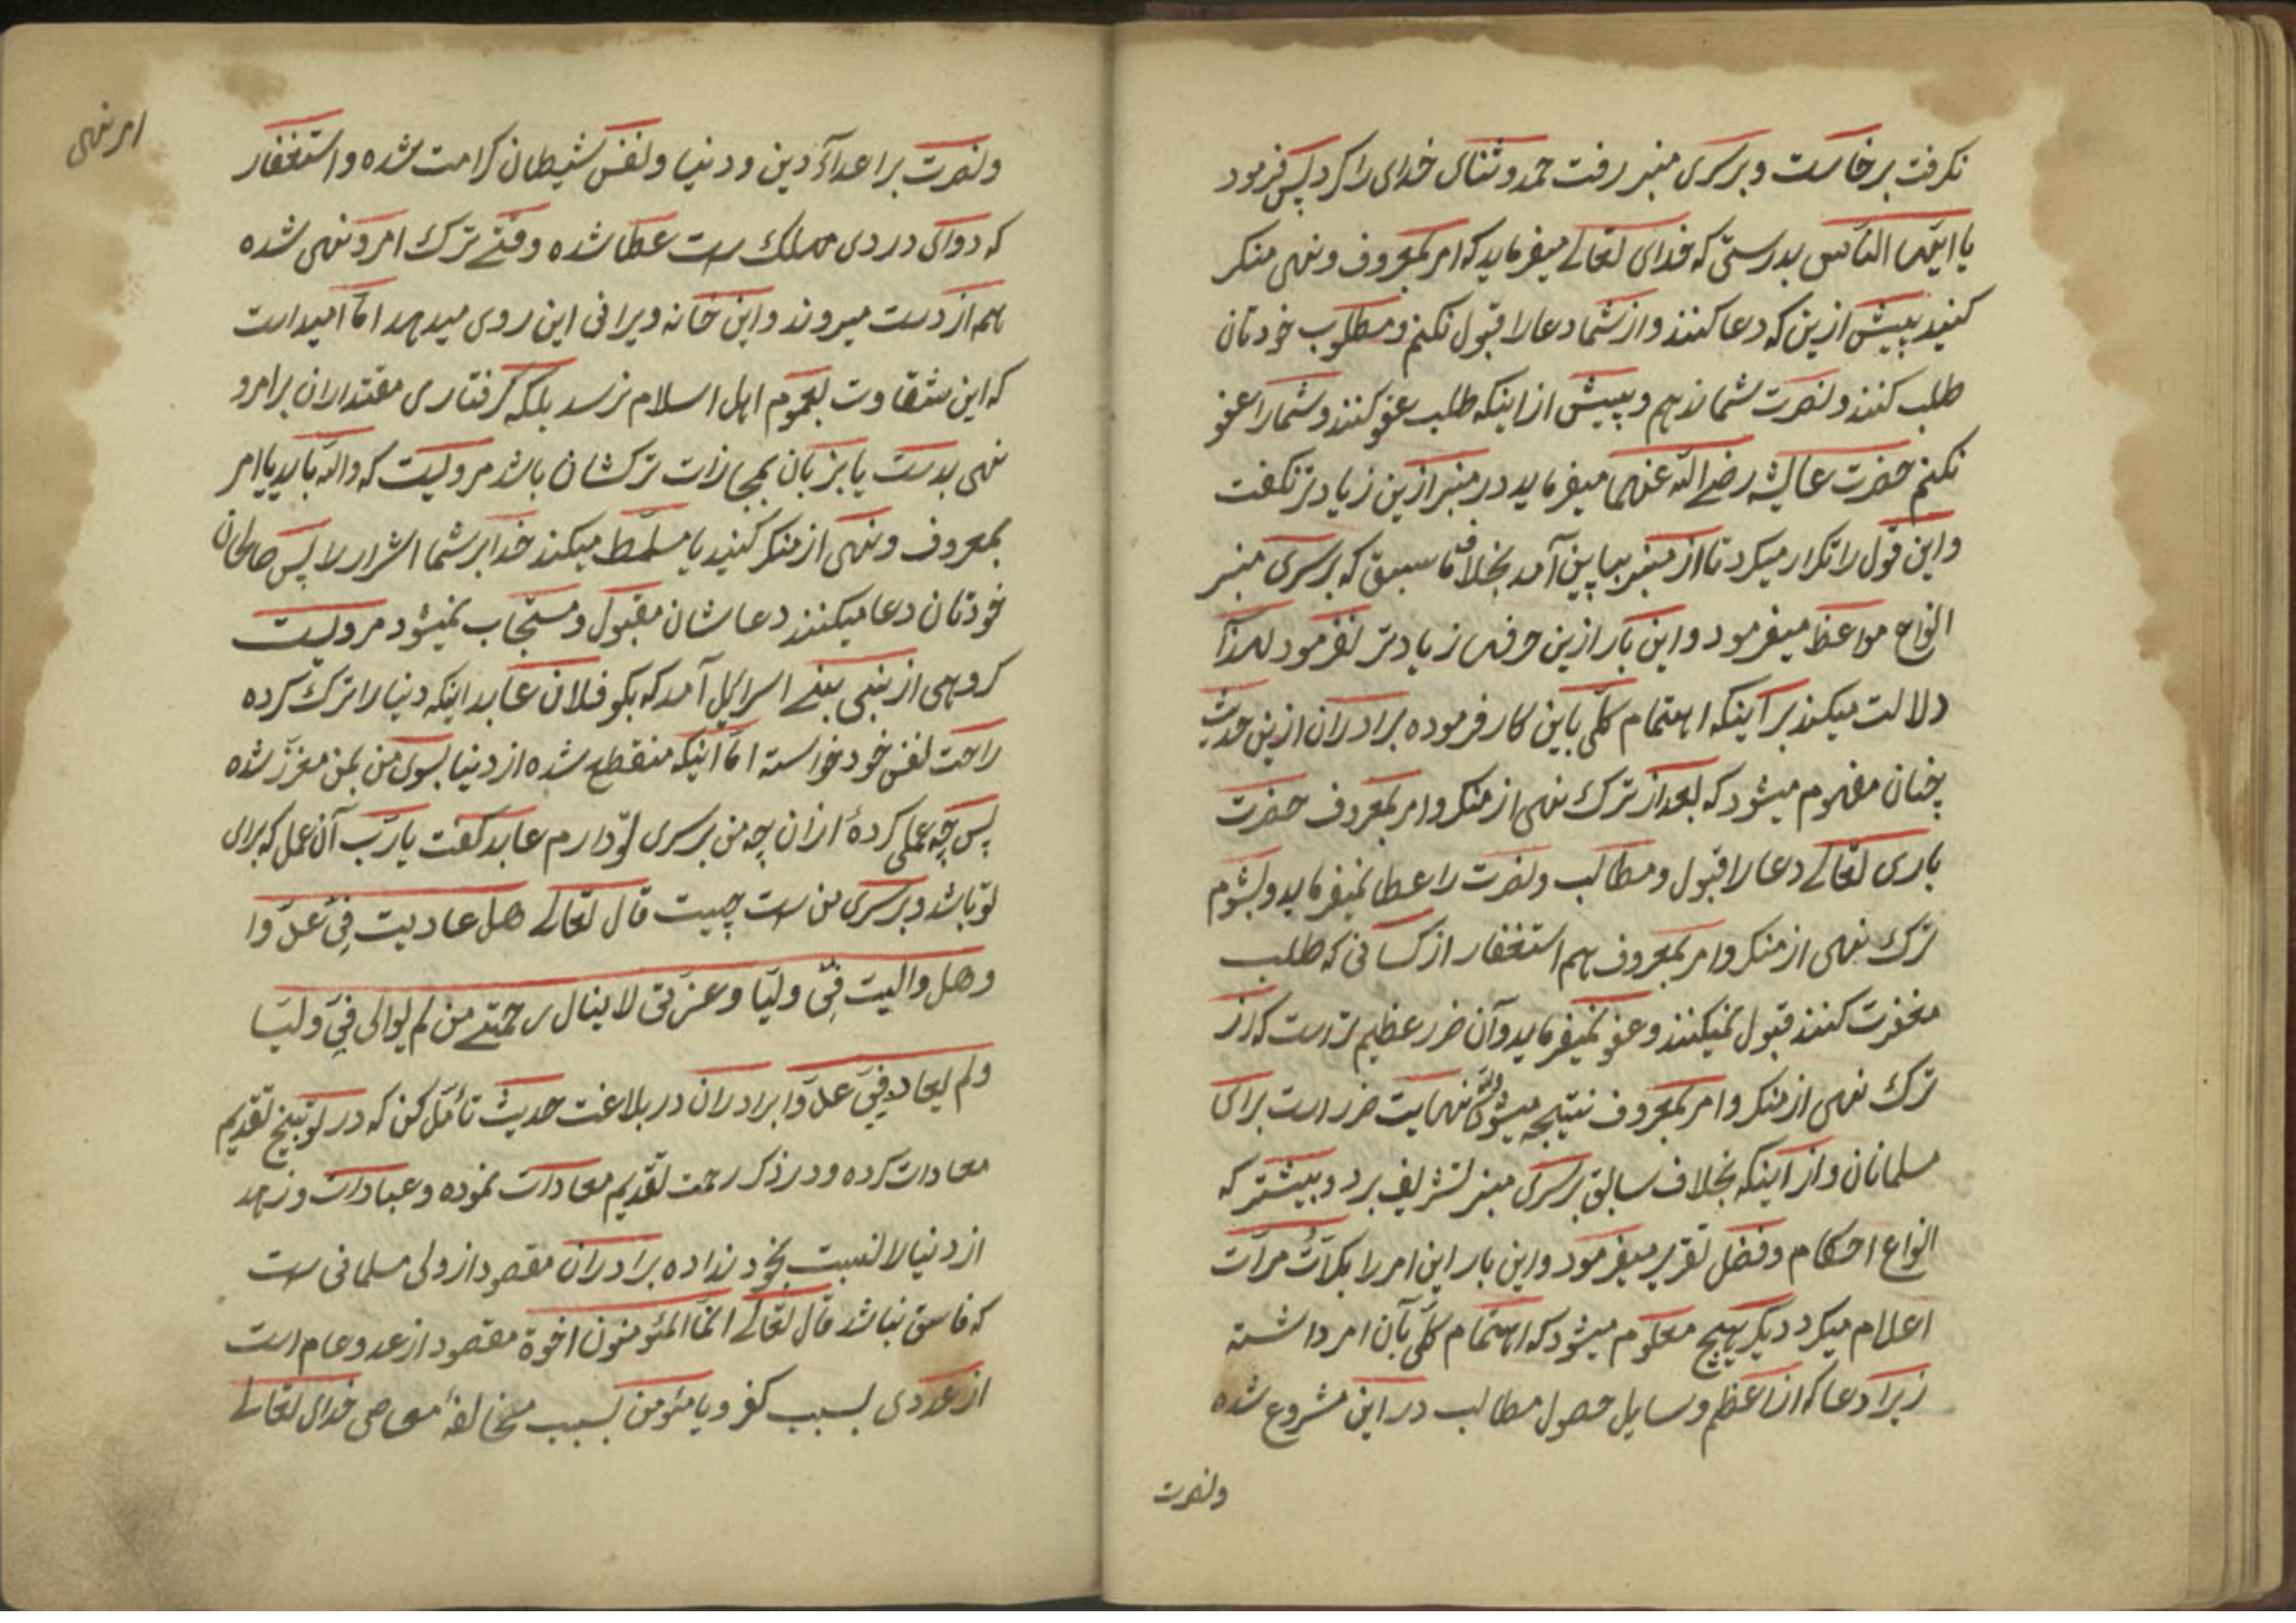 نکرفت برخاست و برسری منبر رفت حمد و ثنای خدای را کرد پس فرمود
یا ایّها النّاس بدرستی که خدای تعالے میفرماید که امر بمعروف و نهی منکر
کنید پیش ازین که دعا کنند و از شما دعا را قبول نکنم و مطلوب خودتان
طلب کنند و نصرت شما ندهم و پیش از اینکه طلب عفو کنند و شما را عفو
نکنم حضرت عایشه رضے اللّه عنها میفرماید در منبر ازین زیادتر نکفت
و این قول را تکرار میکرد تا از منبر بپایین آمد بخلاف ما سبق که برسری منبر
انواع مواعظ میفرمود و این بار ازین حرفها زیادتر نفرمود لهذا
دلالت میکند بر آینکه اهتمام کلّی باین کار فرموده برادران ازین حدیث
چنان مفهوم میشود که بعد از ترک نهی از منکر و امر بمعروف حضرت
باری تعالے دعا را قبول و مطالب و نصرت را عطا نمیفرماید و بشوم
ترک نهی از منکر و امر بمعروف هم استغفار از کسانی که طلب
مغفرت کنند قبول نمیکنند و عفو نمیفرماید و آن ضرر عظیم تر است که از
ترک نهی از منکر و امر بمعروف نتیجه میشود نهایت ضرر است برای
مسلمانان و از اینکه بخلاف سابق برسری منبر تشریف برد و بیشتر که
انواع احکام و فضل تقریر میفرمود و این بار این امر را بکرّات مرّات
اعلام میکرد دیکر بهیچ معلوم میشود که اهتمام کلّی بآن امر داشته
زیرا دعا که از اعظم وسایل حصول مطالب در این مشروع شده
ونصرت
امر نهی
و نصرت بر اعدآء دین و دنیا و نفس شیطان کرامت شده و استغفار
که دوای دردی مهلک ست عطا شده وقتے ترک امر و نهی شده
هم از دست میروند و این خانه ویرانی این روی میدهد امّا امید است
که این شقاوت بعموم اهل اسلام نرسد بلکه کرفتاری مقتداران بر امر و
نهی بدست یا بزبان بمجازات ترکشان باشد مرویست که واللّه باید یا امر
بمعروف و نهی از منکر کنید یا مسلّط میکند خدا بر شما اشرار را پس صالحان
خودتان دعا میکنند دعاشان مقبول و مستجاب نمیشود مرویست
کروهی از نبی بنے اسرایل آمد که بکو فلان عابد اینکه دنیا را ترک کرده
راحت نفس خود خواسته امّا اینکه منقطع شده از دنیا بسوی من بمن معزّز شده
پس چه عملی کردهٔ از ان چه من برسری تو دارم عابد کفت یا ربّ آن عمل که برای
تو باشد و برسری من ست چیست قال تعالے هل عادیت فِیَّ عدوّا
و هل والیت فِیَّ ولیّا و عزتی لا ینال رحمتے من لم یوالی فِیَّ ولیّا
و لم یعاد فِیَّ عدوّا برادران در بلاغت حدیث تأمّل کن که در توبیخ تقدیم
معادات کرده و در ذکر رحمت تقدیم معادات نموده و عبادات و زهد
از دنیا را نسبت بخود نداده برادران مقصود از ولی مسلمانی ست
که فاسق نباشد قال تعالے انّما المئومنون اخوة مقصود از عدو عام است
از عددی بسبب کفر و یا مئومن بسبب مخالفهٔ معاصی خدای تعالے